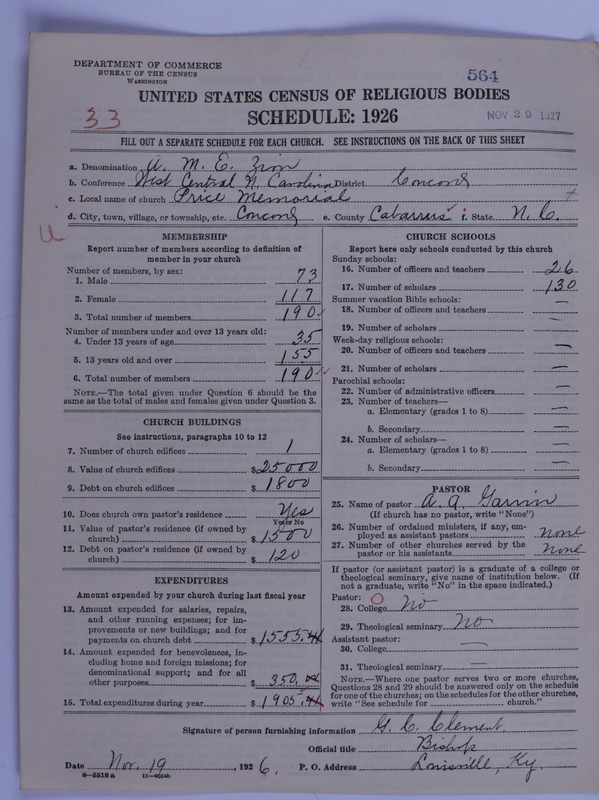 DEPARTMENT OF COMMERCE
BUREAU OF THE CENSUS
WASHINGTON
564
UNITED STATES CENSUS OF RELIGIOUS BODIES
33
SCHEDULE: 1926
NOV 29 1927
FILL OUT A SEPARATE SCHEDULE FOR EACH CHURCH. SEE INSTRUCTIONS ON THE BACK OF THIS SHEET
a. Denomination A. M. E. Zion
b. Conference West Central N. Carolina District Concord
c. Local name of church Price Memorial
d. City, town, village, or township, etc. Concord e. County Cabarrus f. State N. C.
MEMBERSHIP
Report number of members according to definition of
member in your church
Number of members, by sex:
1. Male 73
2. Female 117
3. Total number of members 190
Number of members under and over 13 years old:
4. Under 13 years of age 35
5. 13 years old and over 155
6. Total number of members 190
NOTE.—The total given under Question 6 should be the
same as the total of males and females given under Question 3.
CHURCH BUILDINGS
See instructions, paragraphs 10 to 12
7. Number of church edifices 1
8. Value of church edifices $25000
9. Debt on church edifices $1800
10. Does church own pastor's residence Yes
Yes or No
11. Value of pastor's residence (if owned by
church) $1500
12. Debt on pastor's residence (if owned by
church) $120
EXPENDITURES
Amount expended by your church during last fiscal year
13. Amount expended for salaries, repairs,
and other running expenses; for im-
provements or new buildings; and for
payments on church debt $1555.41
14. Amount expended for benevolences, in-
cluding home and foreign missions; for
denominational support; and for all
other purposes $350.00
15. Total expenditures during year $1905.41
CHURCH SCHOOLS
Report here only schools conducted by this church
Sunday schools:
16. Number of officers and teachers 26
17. Number of scholars 130
Summer vacation Bible schools:
18. Number of officers and teachers —
19. Number of scholars —
Week-day religious schools:
20. Number of officers and teachers —
21. Number of scholars —
Parochial schools:
22. Number of administrative officers —
23. Number of teachers—
a. Elementary (grades 1 to 8) —
b. Secondary —
24. Number of scholars—
a. Elementary (grades 1 to 8) —
b. Secondary —
PASTOR
25. Name of pastor A. A. Garvin
(If church has no pastor, write "None")
26. Number of ordained ministers, if any, em-
ployed as assistant pastors none
27. Number of other churches served by the
pastor or his assistants none
If pastor (or assistant pastor) is a graduate of a college or
theological seminary, give name of institution below. (If
not a graduate, write "No" in the space indicated.)
Pastor:
28. College No
29. Theological seminary No
Assistant pastor:
30. College —
31. Theological seminary —
NOTE.—Where one pastor serves two or more churches,
Questions 28 and 29 should be answered only on the schedule
for one of the churches; on the schedules for the other churches,
write "See schedule for church."
Signature of person furnishing information G. C. Clement
Official title Bishop
Date Nov. 19, 1926. P. O. Address Louisville, Ky.